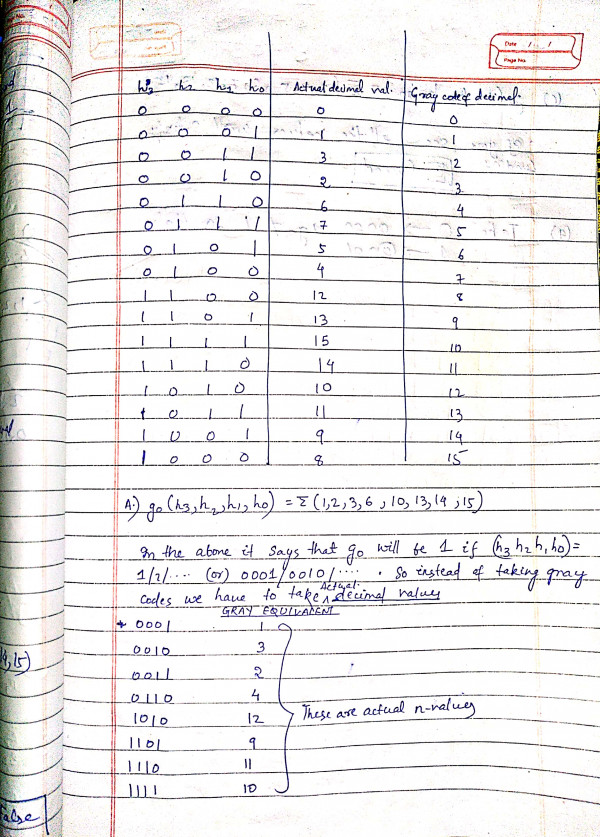 Date / /
Page No.
h3 h2 h1 h0 Actual decimal val. Gray code of decimal.
0 0 0 0 0 0
0 0 0 1 1 1
0 0 1 1 3 2
0 0 1 0 2 3
0 1 1 0 6 4
0 1 1 1 7 5
0 1 0 1 5 6
0 1 0 0 4 7
1 1 0 0 12 8
1 1 0 1 13 9
1 1 1 1 15 10
1 1 1 0 14 11
1 0 1 0 10 12
1 0 1 1 11 13
1 0 0 1 9 14
1 0 0 0 8 15
A.) g0 (h3, h2, h1, h0) = Σ (1,2,3,6,10,13,14,15)
In the above it says that g0 will be 1 if (h3 h2 h1 h0) =
1/2/.... (or) 0001/0010/..... So instead of taking gray
codes we have to take Actual decimal values
GRAY EQUIVALENT
0001 1
0010 3
0011 2
0110 4
1010 12 These are actual n-values
1101 9
1110 11
1111 10
9,15)
False